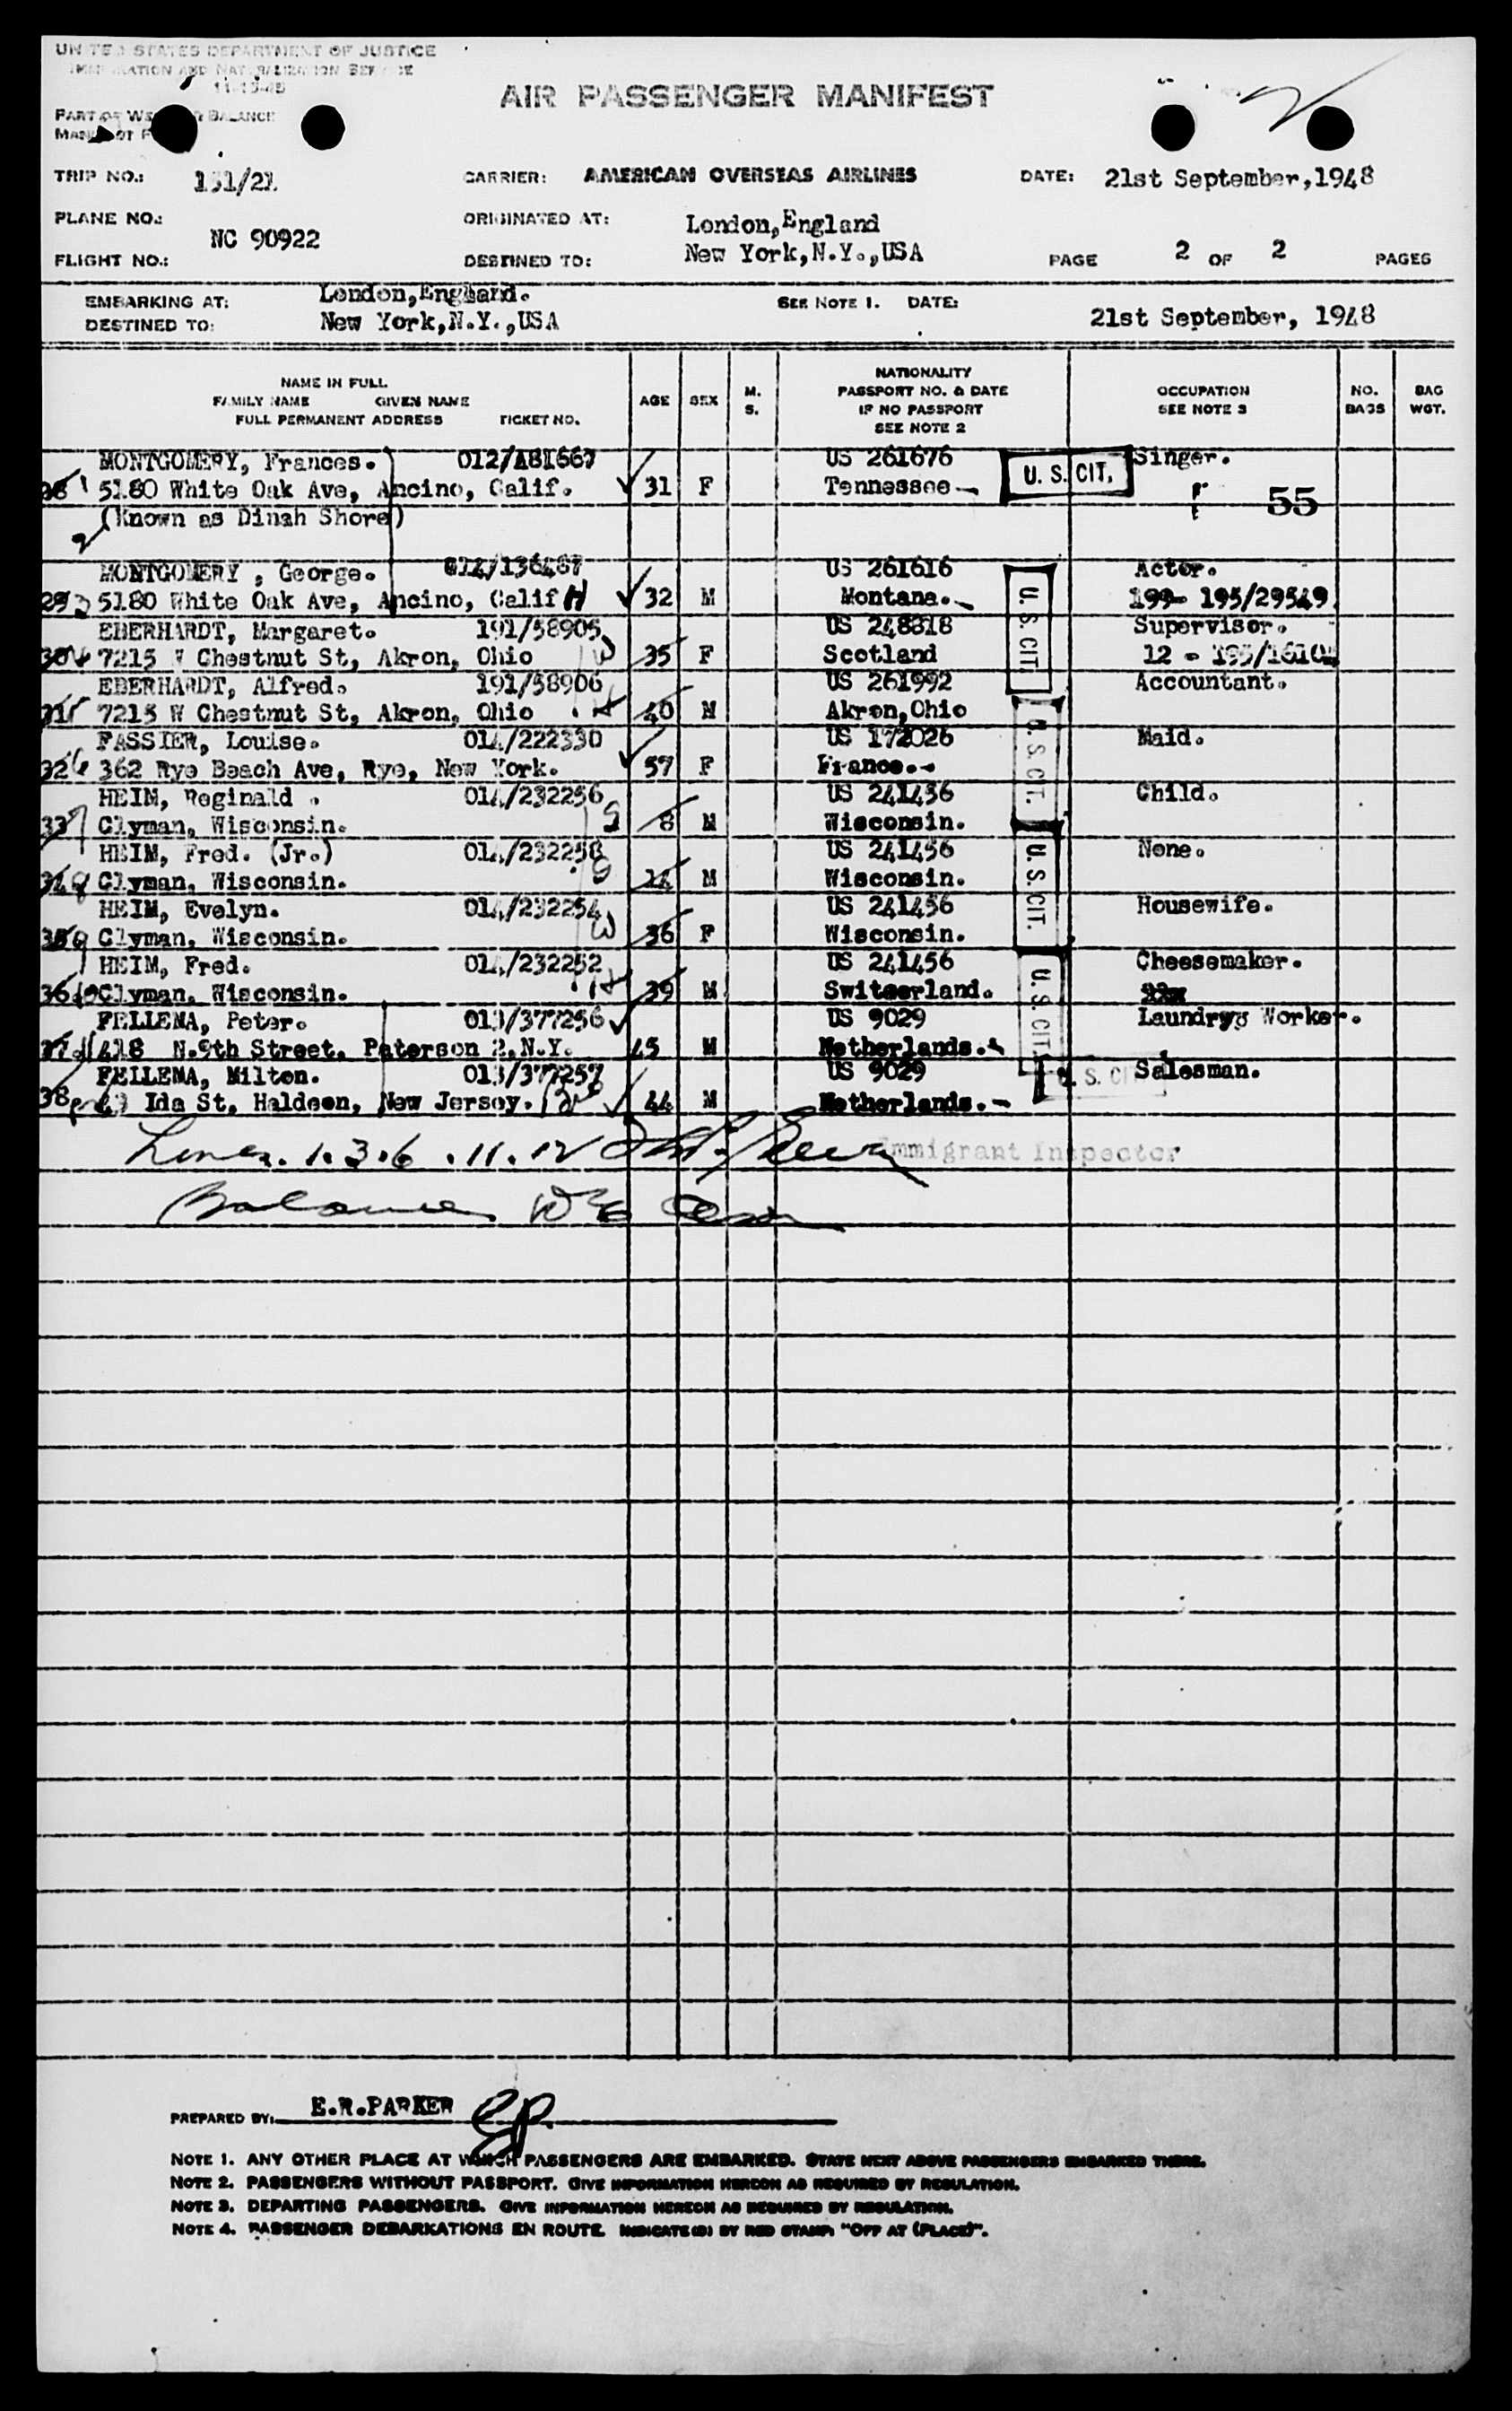 UNITED STATES DEPARTMENT OF JUSTICE
IMMIGRATION AND NATURALIZATION SERVICE
11-15-45
AIR PASSENGER MANIFEST
PART OF WEIGHT & BALANCE
TRIP NO.: 151/21 CARRIER: AMERICAN OVERSEAS AIRLINES DATE: 21st September,1948
PLANE NO.: NC 90922 ORIGINATED AT: London,England
FLIGHT NO.: DESTINED TO: New York,N.Y.,USA PAGE 2 OF 2 PAGES
EMBARKING AT: London,England. SEE NOTE 1. DATE:
DESTINED TO: New York,N.Y.,USA 21st September, 1948
NAME IN FULL
FAMILY NAME GIVEN NAME
FULL PERMANENT ADDRESS TICKET NO.
AGE SEX M. S.
NATIONALITY
PASSPORT NO. & DATE
IF NO PASSPORT
SEE NOTE 2
OCCUPATION
SEE NOTE 3
NO. BAGS
BAG WGT.
MONTGOMERY, Frances. 012/181667 US 261676 Singer.
1 5180 White Oak Ave, Ancino, Calif. 31 F Tennessee U. S. CIT. 55
2 (Known as Dinah Shore)
MONTGOMERY , George. 014/136487 US 261616 Actor.
29 3 5180 White Oak Ave, Ancino, Calif H 32 M Montana. U. S. CIT. 199- 195/29549
EBERHARDT, Margaret. 191/58905 US 248318 Supervisor.
30 4 7215 W Chestnut St, Akron, Ohio W 35 F Scotland 12 -
EBERHARDT, Alfred. 191/58906 US 261992 Accountant.
31 5 7215 W Chestnut St, Akron, Ohio H 40 M Akron,Ohio
FASSIER, Louise. 014/222330 US 172026 Maid.
32 6 362 Rye Beach Ave, Rye, New York. 57 F France. U. S. CIT.
HEIM, Reginald . 014/232256 US 241456 Child.
33 7 Clyman, Wisconsin. S 8 M Wisconsin.
HEIM, Fred. (Jr.) 014/232258 US 241456 None.
34 8 Clyman, Wisconsin. S 14 M Wisconsin. U. S. CIT.
HEIM, Evelyn. 014/232254 US 241456 Housewife.
35 9 Clyman, Wisconsin. W 36 F Wisconsin.
HEIM, Fred. 014/232252 US 241456 Cheesemaker.
36 10 Clyman, Wisconsin. H 39 M Switzerland. U. S. CIT.
FELLEMA, Peter. 013/377256 US 9029 Laundryg Worker.
37 11 418 N.9th Street, Paterson 2,N.Y. 45 M Netherlands.
FELLEMA, Milton. 013/377257 US 9029 U. S. CIT. Salesman.
38 Ida St, Haldeon, New Jersey. 44 M Netherlands.
Lines. 1. 3. 6 . 11. 12 Immigrant Inspector
Balance
PREPARED BY: E.R.PARKER
NOTE 1. ANY OTHER PLACE AT WHICH PASSENGERS ARE EMBARKED. STATE NEXT ABOVE PASSENGERS EMBARKED THERE.
NOTE 2. PASSENGERS WITHOUT PASSPORT. GIVE INFORMATION HEREON AS REQUIRED BY REGULATION.
NOTE 3. DEPARTING PASSENGERS. GIVE INFORMATION HEREON AS REQUIRED BY REGULATION.
NOTE 4. PASSENGER DEBARKATIONS EN ROUTE. INDICATE(D) BY RED STAMP: "OFF AT (PLACE)".